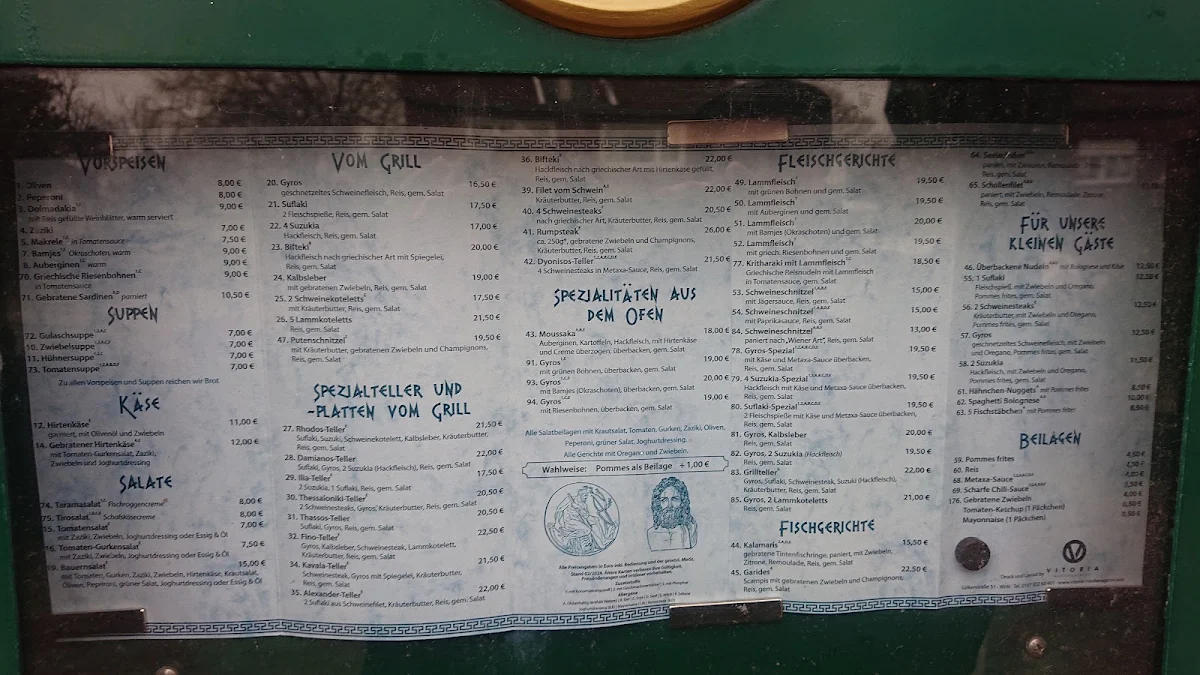 VORSPEISEN
1. Oliven 8,00 €
2. Peperoni 8,00 €
3. Dolmadakia 9,00 €
mit Reis gefüllte Weinblätter, warm serviert
4. Zaziki 7,00 €
5. Makrele in Tomatensauce 7,50 €
7. Bamjes Okraschoten, warm 9,00 €
8. Auberginen warm 9,00 €
70. Griechische Riesenbohnen 9,00 €
in Tomatensauce
71. Gebratene Sardinen paniert 10,50 €
SUPPEN
72. Gulaschsuppe 7,00 €
10. Zwiebelsuppe 7,00 €
11. Hühnersuppe 7,00 €
73. Tomatensuppe 7,00 €
Zu allen Vorspeisen und Suppen reichen wir Brot
KÄSE
12. Hirtenkäse 11,00 €
garniert, mit Olivenöl und Zwiebeln
14. Gebratener Hirtenkäse 12,00 €
mit Tomaten-Gurkensalat, Zaziki,
Zwiebeln und Joghurtdressing
SALATE
74. Taramasalat Fischroggencreme 8,00 €
75. Tirosalat Schafskäsecreme 8,00 €
15. Tomatensalat 7,00 €
mit Zaziki, Zwiebeln, Joghurtdressing oder Essig & Öl
16. Tomaten-Gurkensalat 7,50 €
mit Zaziki, Zwiebeln, Joghurtdressing oder Essig & Öl
19. Bauernsalat 15,00 €
mit Tomaten, Gurken, Zaziki, Zwiebeln, Hirtenkäse, Krautsalat,
Oliven, Peperoni, grüner Salat, Joghurtdressing oder Essig & Öl
VOM GRILL
20. Gyros 16,50 €
geschnetzeltes Schweinefleisch, Reis, gem. Salat
21. Suflaki 17,50 €
2 Fleischspieße, Reis, gem. Salat
22. 4 Suzukia 17,00 €
Hackfleisch, Reis, gem. Salat
23. Bifteki 20,00 €
Hackfleisch nach griechischer Art mit Spiegelei,
Reis, gem. Salat
24. Kalbsleber 19,00 €
mit gebratenen Zwiebeln, Reis, gem. Salat
25. 2 Schweinekoteletts 17,50 €
mit Kräuterbutter, Reis, gem. Salat
26. 5 Lammkoteletts 21,50 €
Reis, gem. Salat
47. Putenschnitzel 19,50 €
mit Kräuterbutter, gebratenen Zwiebeln und Champignons,
Reis, gem. Salat
SPEZIALTELLER UND
-PLATTEN VOM GRILL
27. Rhodos-Teller 21,50 €
Suflaki, Suzuki, Schweinekotelett, Kalbsleber, Kräuterbutter,
Reis, gem. Salat
28. Damianos-Teller 22,00 €
Suflaki, Gyros, 2 Suzukia (Hackfleisch), Reis, gem. Salat
29. Ilia-Teller 17,50 €
2 Suzukia, 1 Suflaki, Reis, gem. Salat
30. Thessaloniki-Teller 20,50 €
2 Schweinesteaks, Gyros, Kräuterbutter, Reis, gem. Salat
31. Thassos-Teller 20,50 €
Suflaki, Gyros, Reis, gem. Salat
32. Fino-Teller 22,50 €
Gyros, Kalbsleber, Schweinesteak, Lammkotelett,
Kräuterbutter, Reis, gem. Salat
34. Kavala-Teller 21,50 €
Schweinesteak, Gyros mit Spiegelei, Reis,
gem. Salat
35. Alexander-Teller 22,00 €
2 Suflaki aus Schweinefilet, Kräuterbutter, Reis, gem. Salat
36. Bifteki 22,00 €
Hackfleisch nach griechischer Art mit Hirtenkäse gefüllt,
Reis, gem. Salat
39. Filet vom Schwein 22,00 €
Kräuterbutter, Reis, gem. Salat
40. 4 Schweinesteaks 20,50 €
nach griechischer Art, Kräuterbutter, Reis, gem. Salat
41. Rumpsteak 26,00 €
ca. 250g, gebratene Zwiebeln und Champignons,
Kräuterbutter, Reis, gem. Salat
42. Dyonisos-Teller 21,50 €
4 Schweinesteaks in Metaxa-Sauce, Reis, gem. Salat
SPEZIALITÄTEN AUS
DEM OFEN
43. Moussaka 18,00 €
Auberginen, Kartoffeln, Hackfleisch, mit Hirtenkäse
und Creme überzogen; überbacken, gem. Salat
91. Gyros 19,00 €
mit grünen Bohnen, überbacken, gem. Salat
93. Gyros 20,00 €
mit Bamjes (Okraschoten), überbacken, gem. Salat
94. Gyros 19,00 €
mit Riesenbohnen, überbacken, gem. Salat
Alle Salatbeilagen mit Krautsalat, Tomaten, Gurken, Zaziki, Oliven,
Peperoni, grüner Salat, Joghurtdressing.
Alle Gerichte mit Oregano und Zwiebeln.
Wahlweise: Pommes als Beilage +1,00 €
FLEISCHGERICHTE
49. Lammfleisch 19,50 €
mit grünen Bohnen und gem. Salat
50. Lammfleisch 19,50 €
mit Auberginen und gem. Salat
51. Lammfleisch 20,00 €
mit Bamjes (Okraschoten) und gem. Salat
52. Lammfleisch 19,50 €
mit griech. Riesenbohnen und gem. Salat
77. Kritharaki mit Lammfleisch 18,50 €
Griechische Reisnudeln mit Lammfleisch
in Tomatensauce, gem. Salat
53. Schweineschnitzel 15,00 €
mit Jägersauce, Reis, gem. Salat
54. Schweineschnitzel 15,00 €
mit Paprikasauce, Reis, gem. Salat
84. Schweineschnitzel 13,00 €
paniert nach „Wiener Art", Reis, gem. Salat
78. Gyros-Spezial 19,50 €
mit Käse und Metaxa-Sauce überbacken,
Reis, gem. Salat
79. 4 Suzukia-Spezial 19,50 €
Hackfleisch mit Käse und Metaxa-Sauce überbacken,
Reis, gem. Salat
80. Suflaki-Spezial 19,50 €
2 Fleischspieße mit Käse und Metaxa-Sauce überbacken,
Reis, gem. Salat
81. Gyros, Kalbsleber 20,00 €
Reis, gem. Salat
82. Gyros, 2 Suzukia (Hackfleisch) 19,50 €
Reis, gem. Salat
83. Grillteller 22,00 €
Gyros, Suflaki, Schweinesteak, Suzuki (Hackfleisch),
Kräuterbutter, Reis, gem. Salat
85. Gyros, 2 Lammkoteletts 21,00 €
Reis, gem. Salat
FISCHGERICHTE
44. Kalamaris 15,50 €
gebratene Tintenfischringe, paniert, mit Zwiebeln,
Zitrone, Remoulade, Reis, gem. Salat
45. Garides 22,50 €
Scampis mit gebratenen Zwiebeln und Champignons,
Reis, gem. Salat
64.
paniert, mit Zwiebeln, Remoulade
Reis, gem. Salat
65. Schollenfilet
paniert, mit Zwiebeln, Remoulade, Zitrone,
Reis, gem. Salat
FÜR UNSERE
KLEINEN GÄSTE
46. Überbackene Nudeln mit Bolognese und Käse 12,50 €
55. 1 Suflaki 12,50 €
Fleischspieß, mit Zwiebeln und Oregano,
Pommes frites, gem. Salat
56. 2 Schweinesteaks 12,50 €
Kräuterbutter, mit Zwiebeln und Oregano,
Pommes frites, gem. Salat
57. Gyros 12,50 €
geschnetzeltes Schweinefleisch, mit Zwiebeln
und Oregano, Pommes frites, gem. Salat
58. 2 Suzukia 11,50 €
Hackfleisch, mit Zwiebeln und Oregano,
Pommes frites, gem. Salat
61. Hähnchen-Nuggets mit Pommes frites 8,50 €
62. Spaghetti Bolognese 10,00 €
63. 5 Fischstäbchen mit Pommes frites 8,50 €
BEILAGEN
59. Pommes frites 4,50 €
60. Reis
68. Metaxa-Sauce
69. Scharfe Chili-Sauce
176. Gebratene Zwiebeln 4,00 €
Tomaten-Ketchup (1 Päckchen) 0,50 €
Mayonnaise (1 Päckchen) 0,50 €
VITORIA